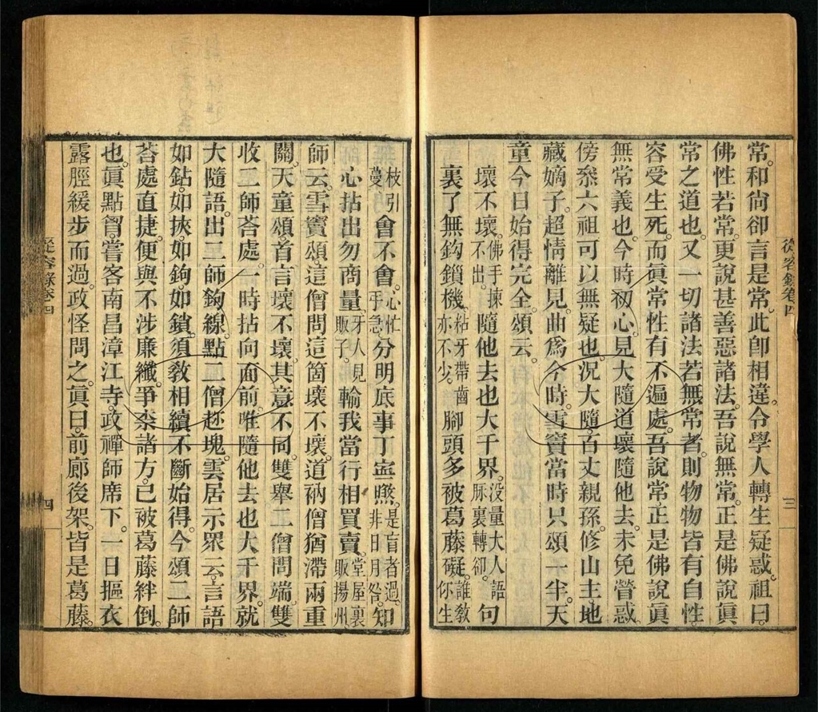 從容錄卷四
三
常。和尚卻言是常。此卽相違。令學人轉生疑惑。祖曰
佛性若常。更說甚善惡諸法。吾說無常。正是佛說眞
常之道也。又一切諸法若無常者。則物物皆有自性
容受生死。而眞常性有不遍處。吾說常正是佛說眞
無常義也。今時初心。見大隨道壞隨他去。未免營惑。
傍叅六祖可以無疑也。況大隨百丈親孫。修山主地
藏嫡子。超情離見。曲爲今時。雪竇當時只頌一半。天
童今日始得完全。頌云。
壞不壞。佛手揀不出。隨他去也大千界。没量大人語脈裏轉卻。句
裏了無鈎鎖機。粘牙帶齒亦不少。腳頭多被葛藤礙。誰敎你生
枝引蔓會不會。心忙手急。分明底事丁寧㬠。是盲者過。非日月咎。知
心拈出勿商量。牙人見販子。輸我當行相買賣。堂屋裏販揚州
師云。雪竇頌這僧問這箇壞不壞。道衲僧猶滯兩重
關。天童頌首言壞不壞。其意不同。雙舉二僧問端。雙
收二師荅處。一時拈向面前。唯隨他去也大千界。就
大隨語。出二師鉤線。點二僧趂塊。雲居示眾云。言語
如鉆如挾如鉤如鎖。須敎相續不斷始得。今頌二師
荅處直捷。便與不涉廉纖。爭柰諸方。已被葛藤絆倒。
也。眞點胷嘗客南昌漳江寺。政禪師席下。一日摳衣
露脛緩步而過。政怪問之。眞曰。前廊後架。皆是葛藤。
從容錄卷四
四